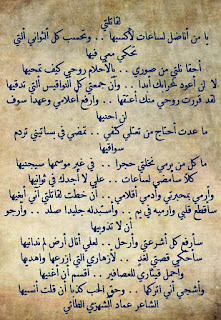 لقاتلتي
يا من أناضل لساعات لأكسبها .. وتحسب كل الثواني التي
تحكي معي فيها
أحقا تملي من صوري .. بالأحلام روحي كيف تمحيها
لا لن أعود لمحرابك أبدا .. وأن جمعتي كل النواقيس التي تدقيها
لقد قررت روحي منك أعتقها .. وأرفع أعلامي وعهدا سوف
لن احنيها
ما عدت أحتاج من تمتلي كتفي .. تمضي في بساتيني تردم
سواقيها
ما كل من يرمي نخلتي حجرا .. في غير موسمها سيجنيها
كلا سأمضي لساعات .. علي لا أجدك في ثوانيها
وأرمي بمحبرتي وأدمي أقلامي .. أن خطت لقاتلتي أني أبغيها
سأقطع قلبي وأرميه في يم .. وأستبدله جليدا صلد .. وأرجو
أن لا تذوبيها
سأرفع كل أشرعتي وأرحل .. لعلي أنال أرض لم تدانيها
سأحكي قصتي لغد .. لأزهاري التي ازرعها واهديها
واحمل قيثاري للعصافير .. اقسم أن أغنيها
وأشجي أني اتركها .. وحق الحب كدنا أن قلت أنسيها
الشاعر عماد الشمري الطائي